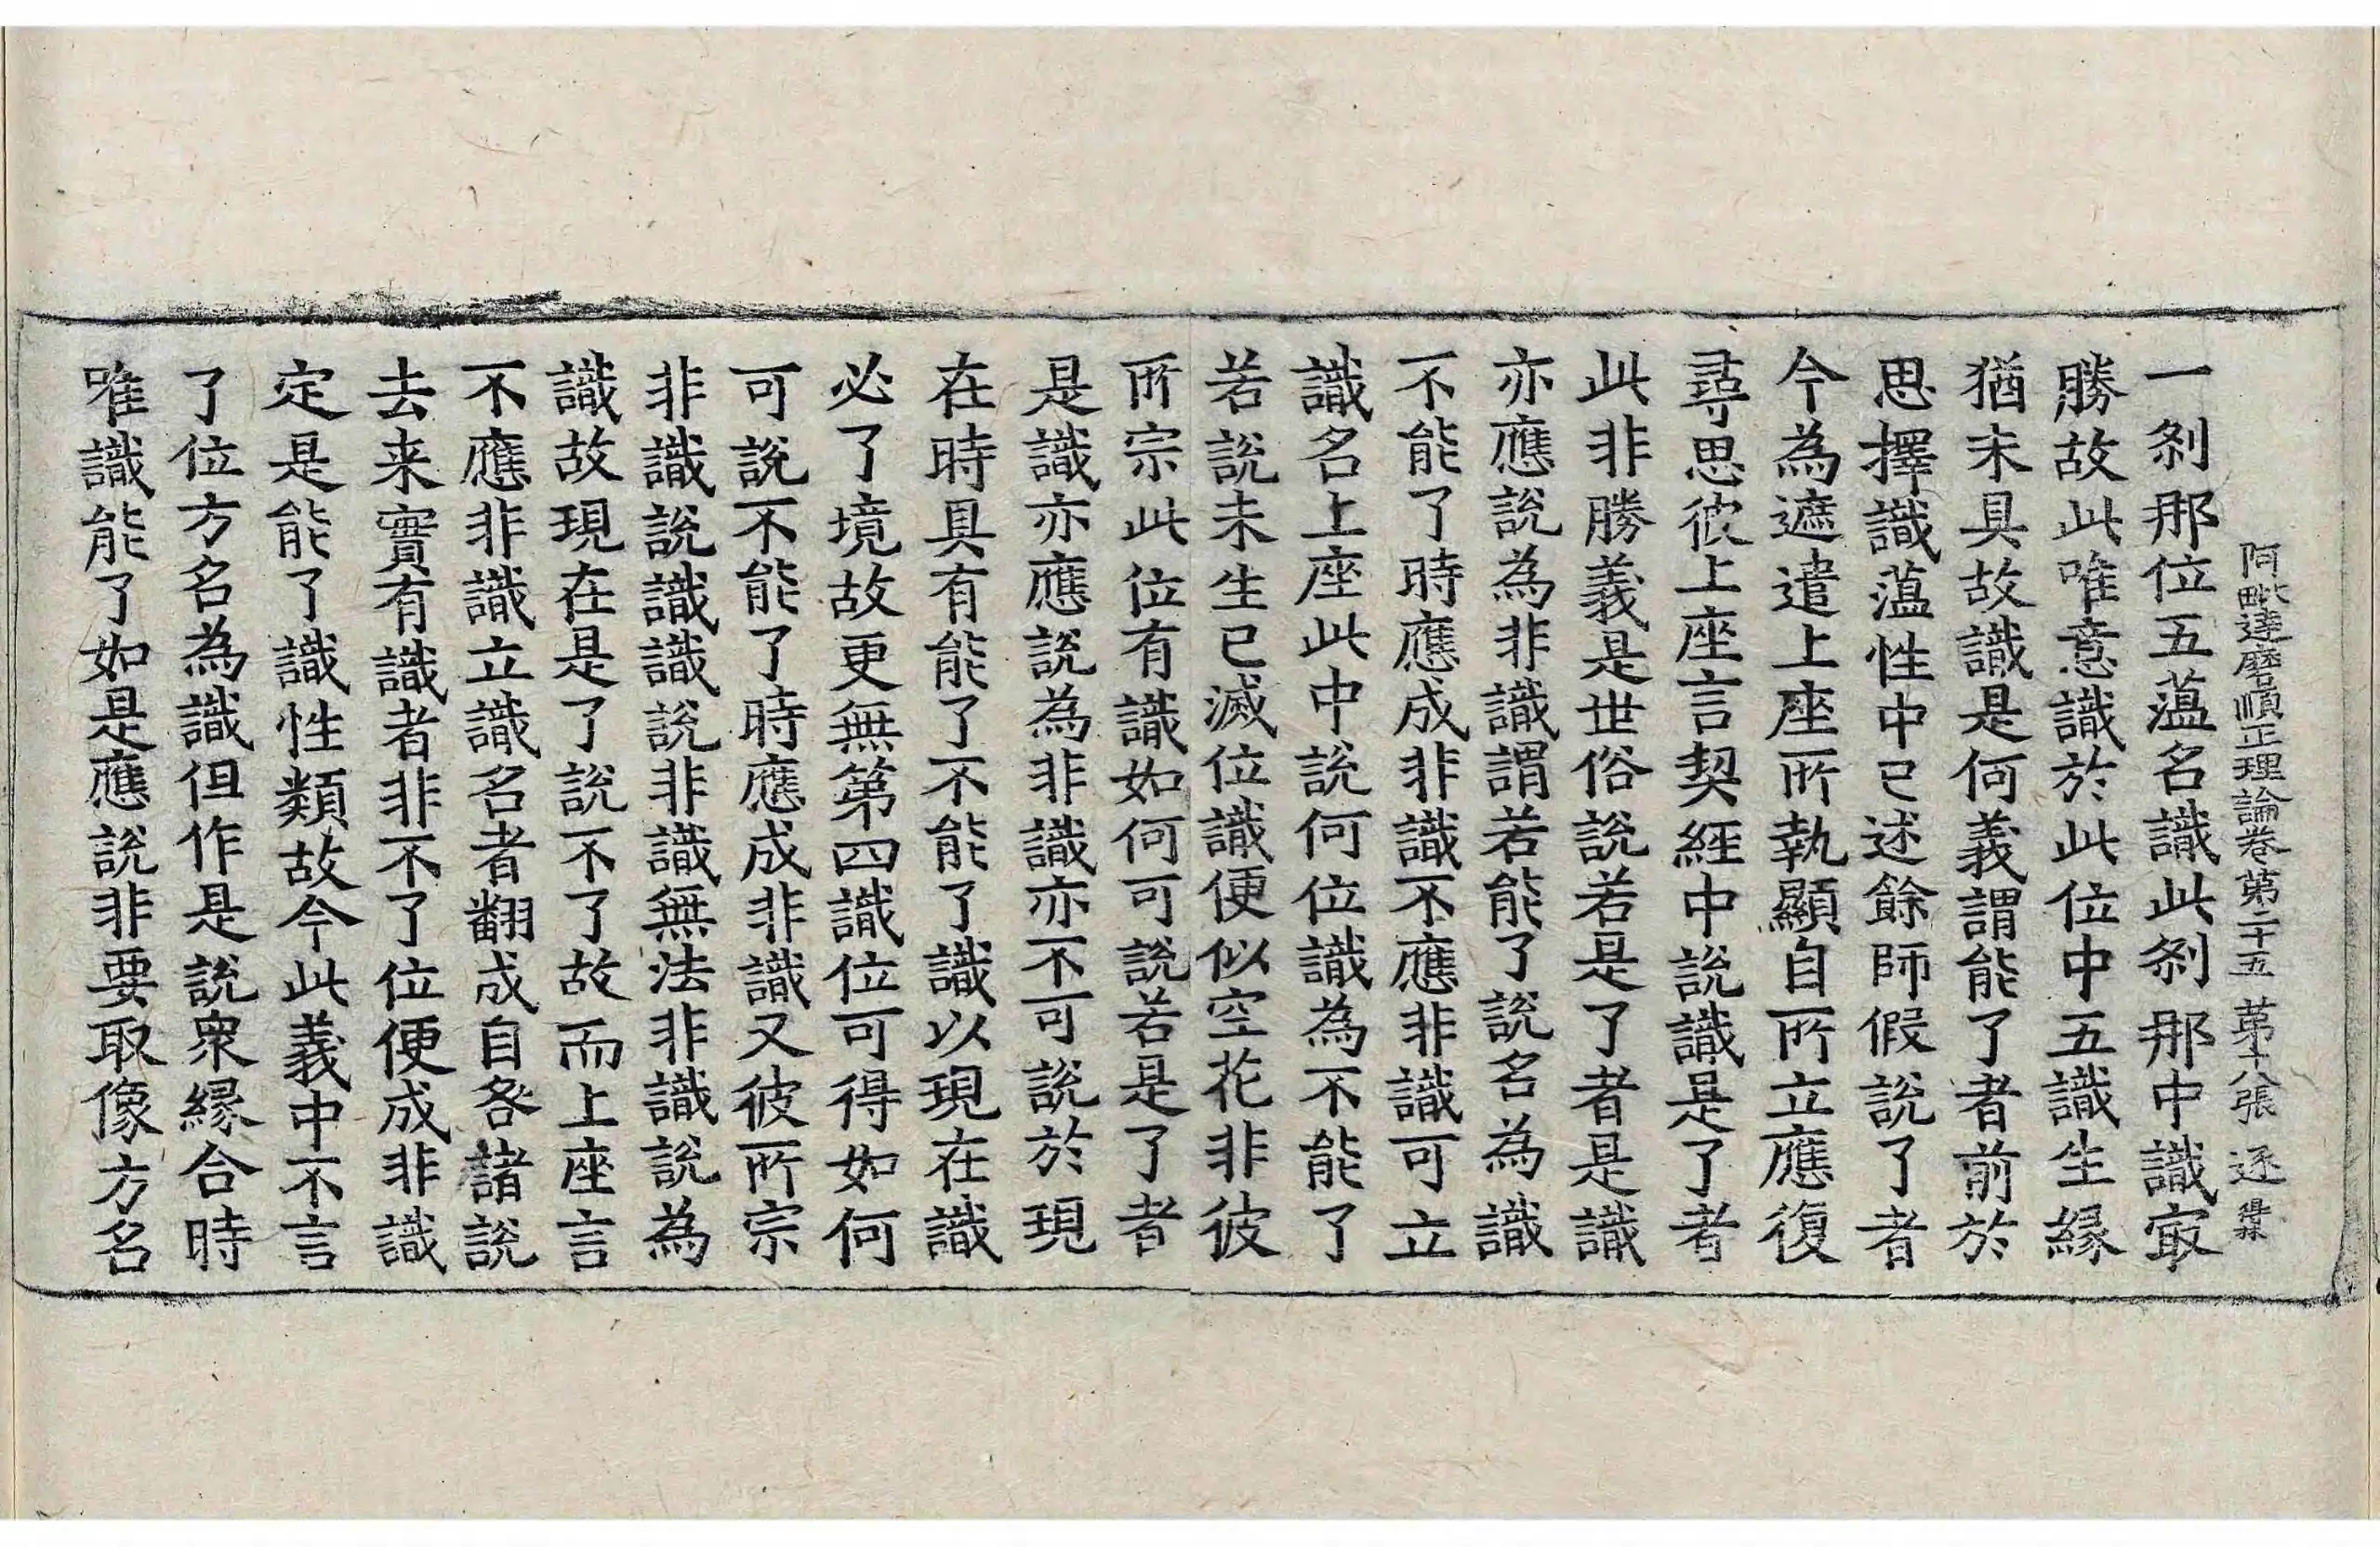 阿毗達磨順正理論卷第二十五 第十八張 逐
一剎那位五薀名識此剎那中識㝡
勝故此唯意識於此位中五識生縁
猶未具故識是何義謂能了者前於
思擇識薀性中已述餘師假說了者
今為遮遣上座所執顯自所立應復
尋思彼上座言契經中說識是了者
此非勝義是世俗說若是了者是識
亦應說為非識謂若能了說名為識
不能了時應成非識不應非識可立
識名上座此中說何位識為不能了
若說未生已滅位識便似空花非彼
所宗此位有識如何可說若是了者
是識亦應說為非識亦不可說於現
在時具有能了不能了識以現在識
必了境故更無第四識位可得如何
可說不能了時應成非識又彼所宗
非識說識識說非識無法非識說為
識故現在是了說不了故而上座言
不應非識立識名者翻成自咎諸說
去来實有識者非不了位便成非識
定是能了識性類故今此義中不言
了位方名為識但作是說衆縁合時
唯識能了如是應說非要取像方名